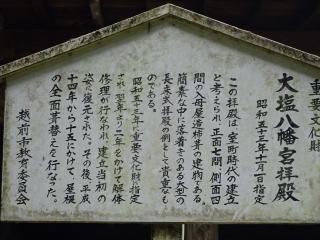 重要文化財
大塩八幡宮拝殿
昭和五十三年十一月指定
この拝殿は、室町時代の建立
と考えられ、正面七間、側面四
間の入母屋造柿葺の建物である。
簡素な中に落着きのある大型の
長床式拝殿の例として貴重なも
のである。
昭和五十三年に重要文化財指定
され、翌年より二年をかけて解体
修理が行なわれ、建立当初の
姿に復元された。その後、平成
十四年から十五にかけて、屋根
の全面葺替えを行なった。
越前市教育委員会